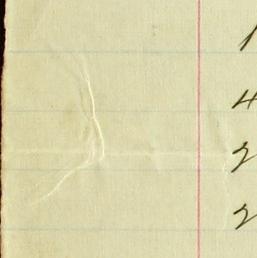 1
4
2
2